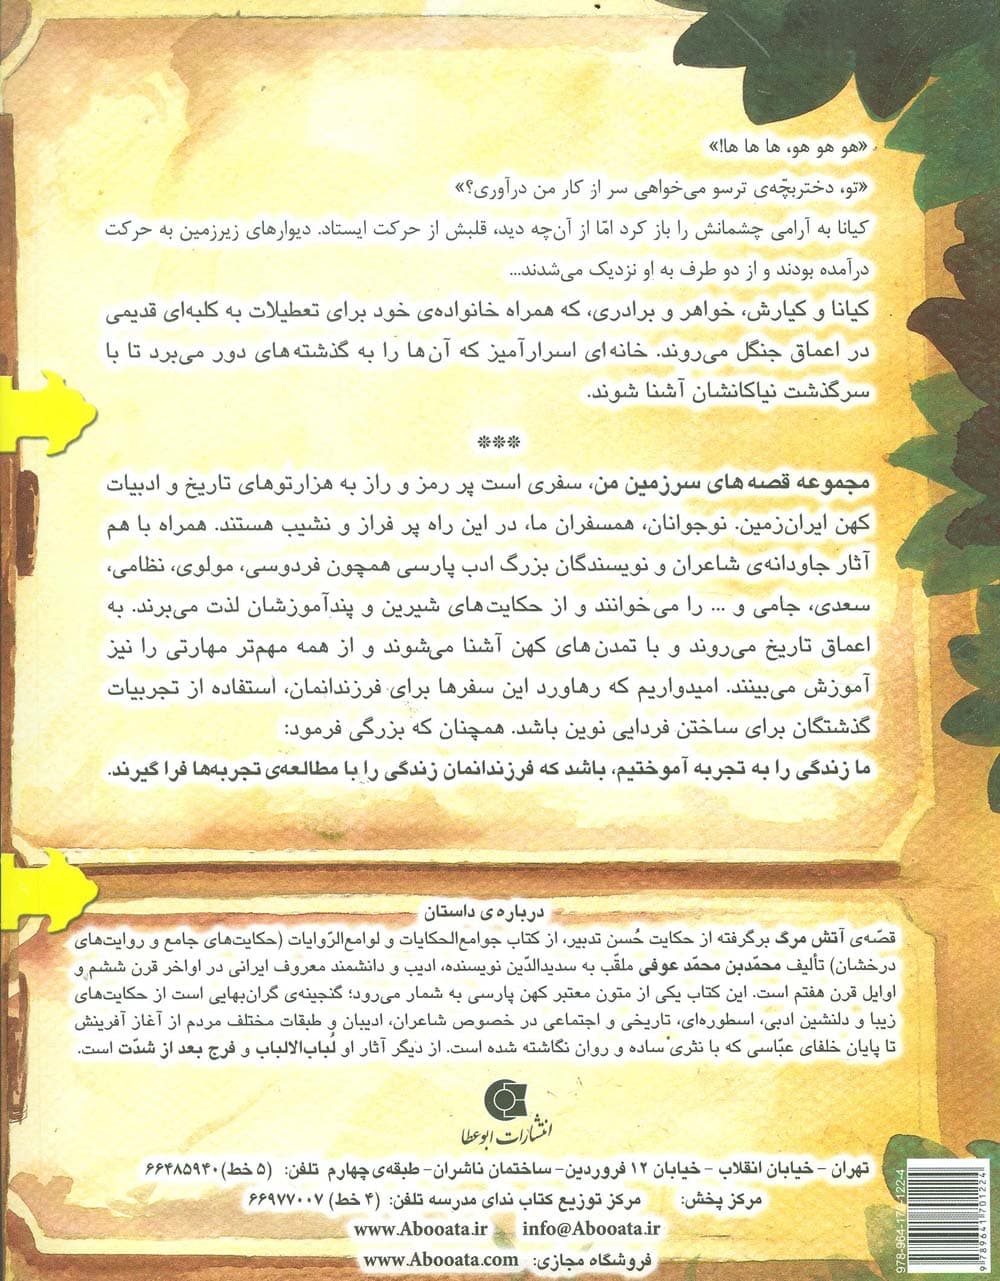 «هو هو هو، ها ها ها!»
«تو، دختربچّه‌ی ترسو می‌خواهی سر از کار من درآوری؟»
کیانا به آرامی چشمانش را باز کرد امّا از آن‌چه دید، قلبش از حرکت ایستاد. دیوارهای زیرزمین به حرکت
درآمده بودند و از دو طرف به او نزدیک می‌شدند...
کیانا و کیارش، خواهر و برادری، که همراه خانواده‌ی خود برای تعطیلات به کلبه‌ای قدیمی
در اعماق جنگل می‌روند. خانه‌ای اسرارآمیز که آن‌ها را به گذشته‌های دور می‌برد تا با
سرگذشت نیاکانشان آشنا شوند.
***
مجموعه قصه‌های سرزمین من، سفری است پر رمز و راز به هزارتوهای تاریخ و ادبیات
کهن ایران‌زمین. نوجوانان، همسفران ما، در این راه پر فراز و نشیب هستند. همراه با هم
آثار جاودانه‌ی شاعران و نویسندگان بزرگ ادب پارسی همچون فردوسی، مولوی، نظامی،
سعدی، جامی و ... را می‌خوانند و از حکایت‌های شیرین و پندآموزشان لذت می‌برند. به
اعماق تاریخ می‌روند و با تمدن‌های کهن آشنا می‌شوند و از همه مهم‌تر مهارتی را نیز
آموزش می‌بینند. امیدواریم که رهاورد این سفرها برای فرزندانمان، استفاده از تجربیات
گذشتگان برای ساختن فردایی نوین باشد. همچنان که بزرگی فرمود:
ما زندگی را به تجربه آموختیم، باشد که فرزندانمان زندگی را با مطالعه‌ی تجربه‌ها فرا گیرند.
درباره‌ی داستان
قصّه‌ی آتش مرگ برگرفته از حکایت حُسن تدبیر، از کتاب جوامع‌الحکایات و لوامع‌الرّوایات (حکایت‌های جامع و روایت‌های
درخشان) تألیف محمّدبن محمّد عوفی ملقب به سدیدالدّین نویسنده، ادیب و دانشمند معروف ایرانی در اواخر قرن ششم و
اوایل قرن هفتم است. این کتاب یکی از متون معتبر کهن پارسی به شمار می‌رود؛ گنجینه‌ی گران‌بهایی است از حکایت‌های
زیبا و دلنشین ادبی، اسطوره‌ای، تاریخی و اجتماعی در خصوص شاعران، ادیبان و طبقات مختلف مردم از آغاز آفرینش
تا پایان خلفای عبّاسی که با نثری ساده و روان نگاشته شده است. از دیگر آثار او لُباب‌الالباب و فرج بعد از شدّت است.
انتشارات ابوعطا
تهران - خیابان انقلاب - خیابان ۱۲ فروردین- ساختمان ناشران- طبقه‌ی چهارم تلفن: (۵ خط) ۶۶۴۸۵۹۴۰
مرکز پخش: مرکز توزیع کتاب ندای مدرسه تلفن: (۴ خط) ۶۶۹۷۷۰۰۷
www.Abooata.ir info@Abooata.ir
فروشگاه مجازی: www.Abooata.com
9789641701224